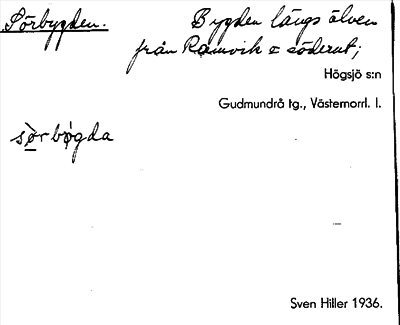 Sörbygden.
Bygden längs älven
från Ramvik o söderut;
Högsjö s:n
Gudmundrå tg., Västernorrl. l.
sø̀rbǿgda
Sven Hiller 1936.